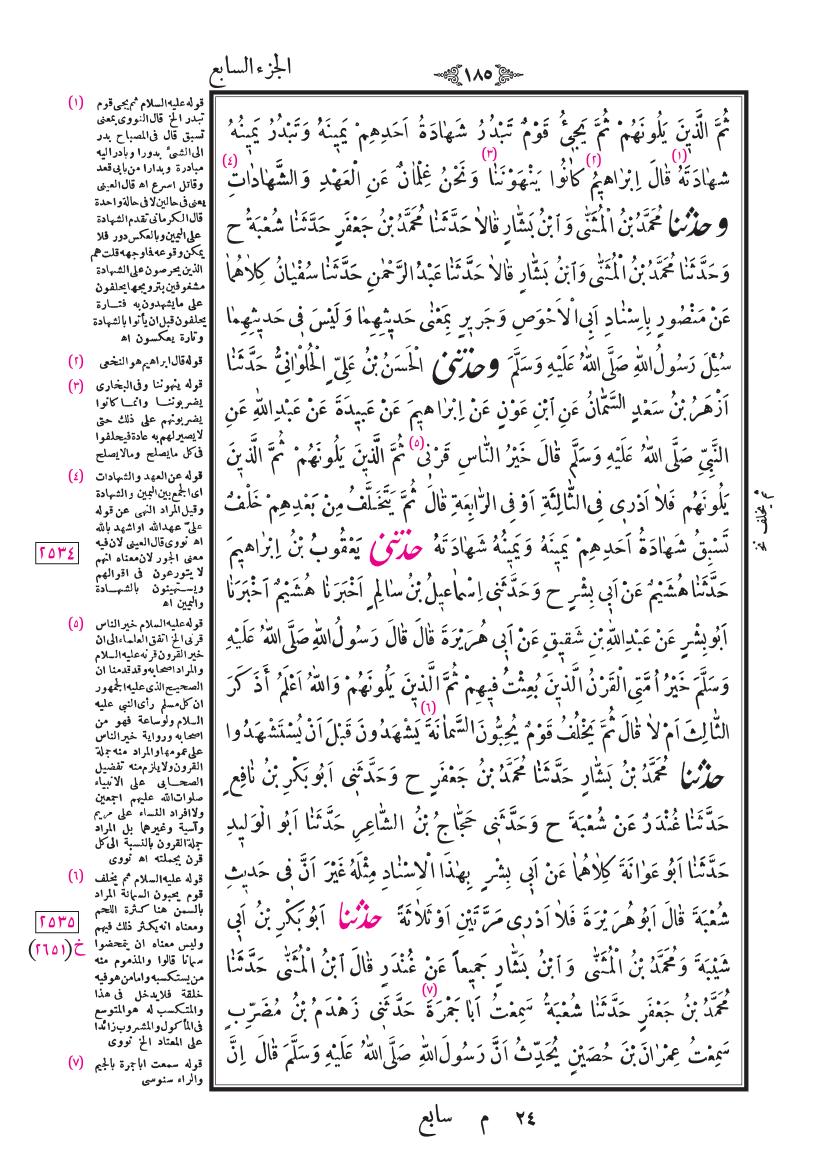 الجزء السابع
١٨٥
ثُمَّ الَّذينَ يَلُونَهُمْ ثُمَّ يَجِئُ قَوْمٌ تَبْدُرُ شَهَادَةُ اَحَدِهِمْ يَمينَهُ وَتَبْدُرُ يَمينُهُ
شَهَادَتَهُ (١) قَالَ اِبْرَاهيمُ (٢) كَانُوا يَنْهَوْنَنَا (٣) وَنَحْنُ غِلْمَانٌ عَنِ الْعَهْدِ وَالشَّهَادَاتِ (٤)
وحدثنا مُحَمَّدُ بْنُ الْمُثَنّٰى وَابْنُ بَشَّارٍ قَالاَ حَدَّثَنَا مُحَمَّدُ بْنُ جَعْفَرٍ حَدَّثَنَا شُعْبَةُ ح
وَحَدَّثَنَا مُحَمَّدُ بْنُ الْمُثَنّٰى وَابْنُ بَشَّارٍ قَالاَ حَدَّثَنَا عَبْدُ الرَّحْمٰنِ حَدَّثَنَا سُفْيَانُ كِلاَهُمَا
عَنْ مَنْصُورٍ بِاِسْنَادِ اَبِي الْاَحْوَصِ وَجَريرٍ بِمَعْنٰى حَديثِهِمَا وَلَيْسَ فى حَديثِهِمَا
سُئِلَ رَسُولُ اللهِ صَلَّى اللهُ عَلَيْهِ وَسَلَّمَ وحدثنى الْحَسَنُ بْنُ عَلِيٍّ الْحُلْوَانِىُّ حَدَّثَنَا
اَزْهَرُ بْنُ سَعْدٍ السَّمَّانُ عَنِ ابْنِ عَوْنٍ عَنْ اِبْرَاهيمَ عَنْ عَبيدَةَ عَنْ عَبْدِ اللهِ عَنِ
النَّبِيِّ صَلَّى اللهُ عَلَيْهِ وَسَلَّمَ قَالَ خَيْرُ النَّاسِ قَرْنى (٥) ثُمَّ الَّذينَ يَلُونَهُمْ ثُمَّ الَّذينَ
يَلُونَهُمْ فَلاَ اَدْرى فِى الثَّالِثَةِ اَوْ فِى الرَّابِعَةِ قَالَ ثُمَّ يَتَخَلَّفُ مِنْ بَعْدِهِمْ خَلْفٌ
تَسْبِقُ شَهَادَةُ اَحَدِهِمْ يَمينَهُ وَيَمينُهُ شَهَادَتَهُ حدثنى يَعْقُوبُ بْنُ اِبْرَاهيمَ
حَدَّثَنَا هُشَيْمٌ عَنْ اَبى بِشْرٍ ح وَحَدَّثَنى اِسْمَاعيلُ بْنُ سَالِمٍ اَخْبَرَنَا هُشَيْمٌ اَخْبَرَنَا
اَبُو بِشْرٍ عَنْ عَبْدِ اللهِ بْنِ شَقيقٍ عَنْ اَبى هُرَيْرَةَ قَالَ قَالَ رَسُولُ اللهِ صَلَّى اللهُ عَلَيْهِ
وَسَلَّمَ خَيْرُ اُمَّتِى الْقَرْنُ الَّذينَ بُعِثْتُ فيهِمْ ثُمَّ الَّذينَ يَلُونَهُمْ وَاللهُ اَعْلَمُ أَذَكَرَ
الثَّالِثَ اَمْ لاَ قَالَ ثُمَّ يَخْلُفُ قَوْمٌ يُحِبُّونَ السَّمَانَةَ (٦) يَشْهَدُونَ قَبْلَ اَنْ يُسْتَشْهَدُوا
حدثنا مُحَمَّدُ بْنُ بَشَّارٍ حَدَّثَنَا مُحَمَّدُ بْنُ جَعْفَرٍ ح وَحَدَّثَنى اَبُو بَكْرِ بْنُ نَافِعٍ
حَدَّثَنَا غُنْدَرٌ عَنْ شُعْبَةَ ح وَحَدَّثَنى حَجَّاجُ بْنُ الشَّاعِرِ حَدَّثَنَا اَبُو الْوَليدِ
حَدَّثَنَا اَبُو عَوَانَةَ كِلاَهُمَا عَنْ اَبى بِشْرٍ بِهٰذَا الْاِسْنَادِ مِثْلَهُ غَيْرَ اَنَّ فى حَديثِ
شُعْبَةَ قَالَ اَبُو هُرَيْرَةَ فَلاَ اَدْرى مَرَّتَيْنِ اَوْ ثَلاَثَةً حدثنا اَبُو بَكْرِ بْنُ اَبى
شَيْبَةَ وَمُحَمَّدُ بْنُ الْمُثَنّٰى وَابْنُ بَشَّارٍ جَميعاً عَنْ غُنْدَرٍ قَالَ ابْنُ الْمُثَنّٰى حَدَّثَنَا
مُحَمَّدُ بْنُ جَعْفَرٍ حَدَّثَنَا شُعْبَةُ سَمِعْتُ اَبَا جَمْرَةَ (٧) حَدَّثَنى زَهْدَمُ بْنُ مُضَرِّبٍ
سَمِعْتُ عِمْرَانَ بْنَ حُصَيْنٍ يُحَدِّثُ اَنَّ رَسُولَ اللهِ صَلَّى اللهُ عَلَيْهِ وَسَلَّمَ قَالَ اِنَّ
(١) قوله عليه السلام ثم يجئ قوم
تبدر الخ قال النووى بمعنى
تسبق قال فى المصباح بدر
الى الشئ بدورا وبادر اليه
مبادرة وبدارا من بابى قعد
وقاتل اسرع اه قال العينى
يعنى فى حالين لا فى حالة واحدة
قال الكرمانى تقدم الشهادة
على اليمين وبالعكس دور فلا
يمكن وقوعه فما وجهه قلت هم
الذين يحرصون على الشهادة
مشغوفين بترويجها يحلفون
على ما يشهدون به فتارة
يحلفون قبل ان يأتوا بالشهادة
وتارة يعكسون اه
(٢) قوله قال ابراهيم هو النخعى
(٣) قوله ينهوننا وفى البخارى
يضربوننا وانما كانوا
يضربونهم على ذلك حتى
لا يصير لهم به عادة فيحلفوا
فى كل ما يصلح وما لا يصلح
(٤) قوله عن العهد والشهادات
اى الجمع بين اليمين والشهادة
وقيل المراد النهى عن قوله
علىّ عهد الله او اشهد بالله
اه نووى قال العينى لان فيه
معنى الجور لان معناه انهم
لا يتورعون فى اقوالهم
ويستهينون بالشهادة
واليمين اه
(٥) قوله عليه السلام خير الناس
قرنى الخ اتفق العلماء الى ان
خير القرون قرنه عليه السلام
والمراد اصحابه وقد قدمنا ان
الصحيح الذى عليه الجمهور
ان كل مسلم رأى النبى عليه
السلام ولو ساعة فهو من
اصحابه ورواية خير الناس
على عمومها والمراد منه جملة
القرون ولا يلزم منه تفضيل
الصحابى على الانبياء
صلوات الله عليهم اجمعين
ولا افراد النساء على مريم
وآسية وغيرهما بل المراد
جملة القرون بالنسبة الى كل
قرن بجملته اه نووى
(٦) قوله عليه السلام ثم يخلف
قوم يحبون السمانة المراد
بالسمن هنا كثرة اللحم
ومعناه انه يكثر ذلك فيهم
وليس معناه ان يتمحضوا
سمانا قالوا والمذموم منه
من يستكسبه واما من هو فيه
خلقة فلا يدخل فى هذا
والمتكسب له هو المتوسع
فى المأكول والمشروب زائدا
على المعتاد الخ نووى
(٧) قوله سمعت اباجمرة بالجيم
والراء سنوسى
٢٥٣٤
٢٥٣٥
خ (٢٦٥١)
ثم يخلف نخ
٢٤ م سابع